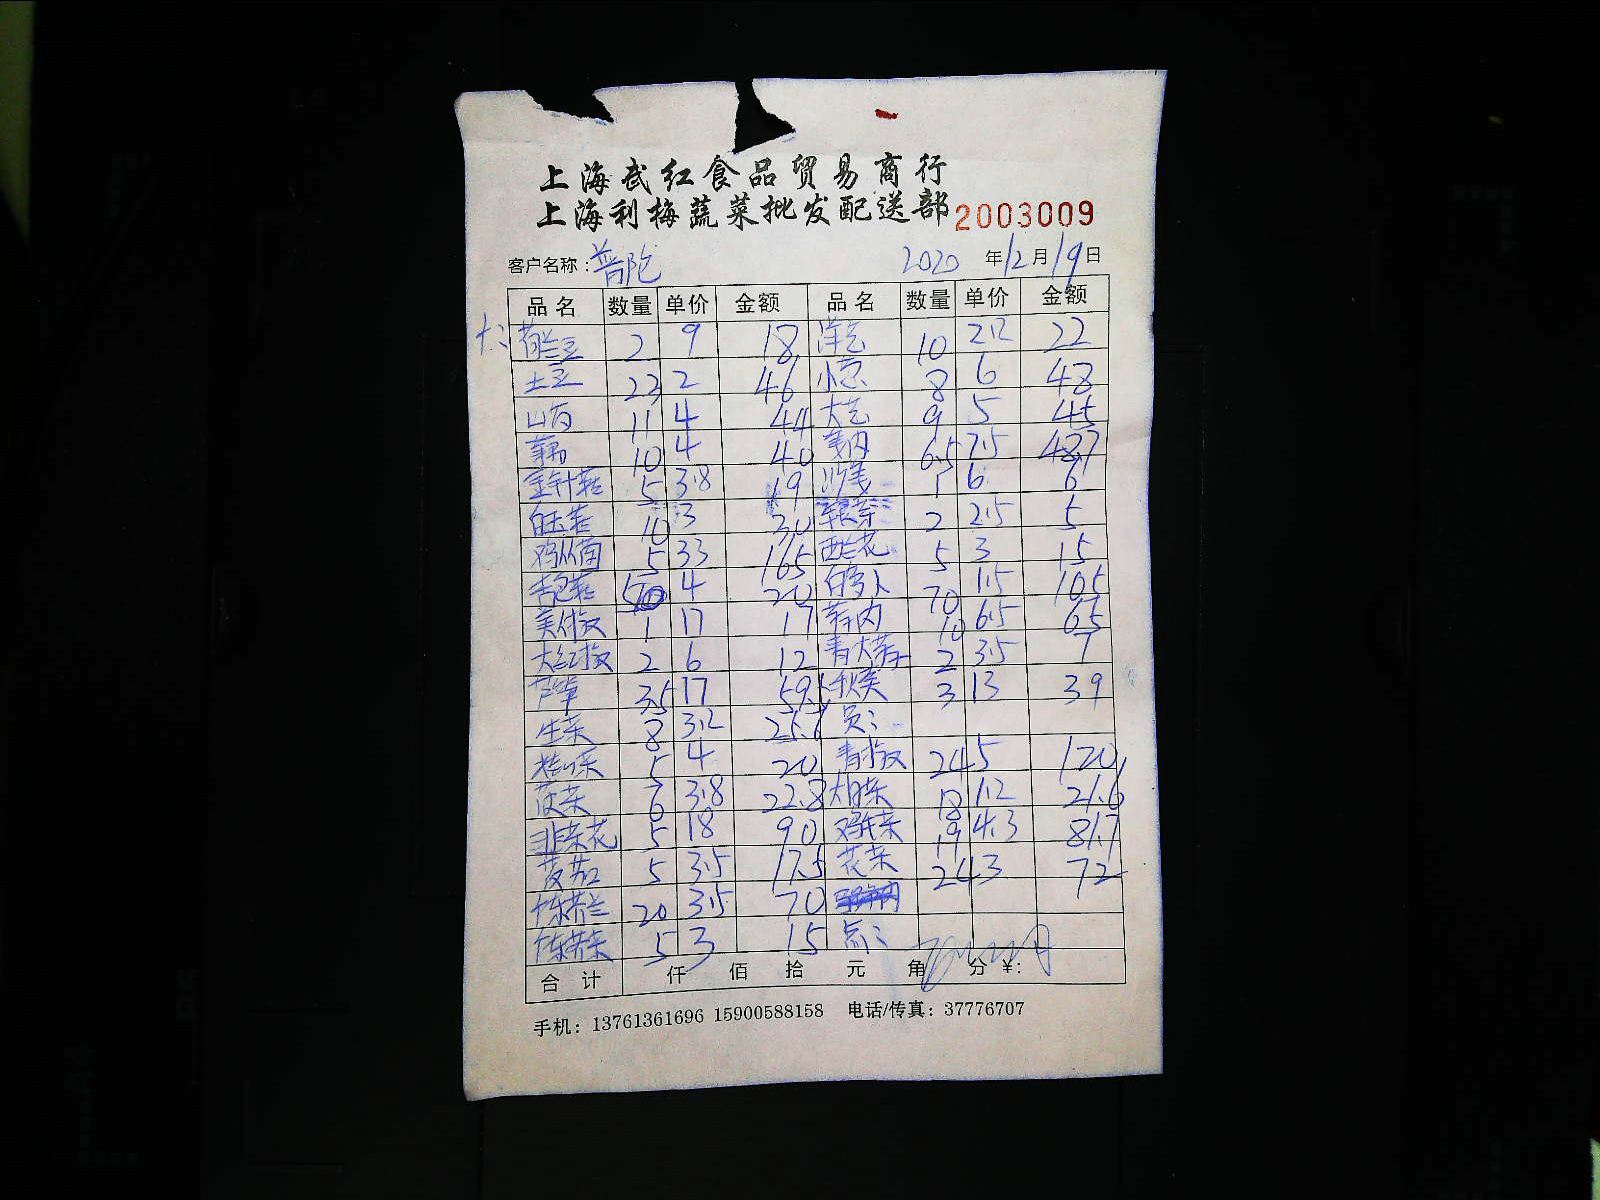 上海武红食品贸易商行
上海利梅蔬菜批发配送部 2003009
客户名称：普陀 2020 年 12 月 19 日
品名 数量 单价 金额 品名 数量 单价 金额
大： 荷兰豆 2 9 18 洋芝 10 2.2 22
土豆 23 2 46 小葱 8 6 48
山药 11 4 44 大芝 9 5 45
10 4 40 姜肉 6.5 7.5 48.7
金针菇 5 3.8 19 沙姜 1 6 6
白玉菇 10 3 30 2 2.5 5
鸡从菌 5 33 165 西兰花 5 3 15
杏包菇 5 4 20 白萝卜 70 1.5 105
美人椒 1 17 17 10 6.5 65
大红椒 2 6 12 青大蒜 2 3.5 7
芦笋 3.5 17 59.5 3 13 39
生菜 8 3.2 25.6 员：
5 4 20 青椒 24 5 120
菠菜 6 3.8 22.8 大白菜 18 1.2 21.6
韭菜花 5 18 90 鸡毛菜 19 4.3 81.7
5 3.5 17.5 花菜 24 3 72
20 3.5 70
5 3 15 点：
合计 仟 佰 拾 元 角 分 ¥:
手机：13761361696 15900588158 电话/传真：37776707